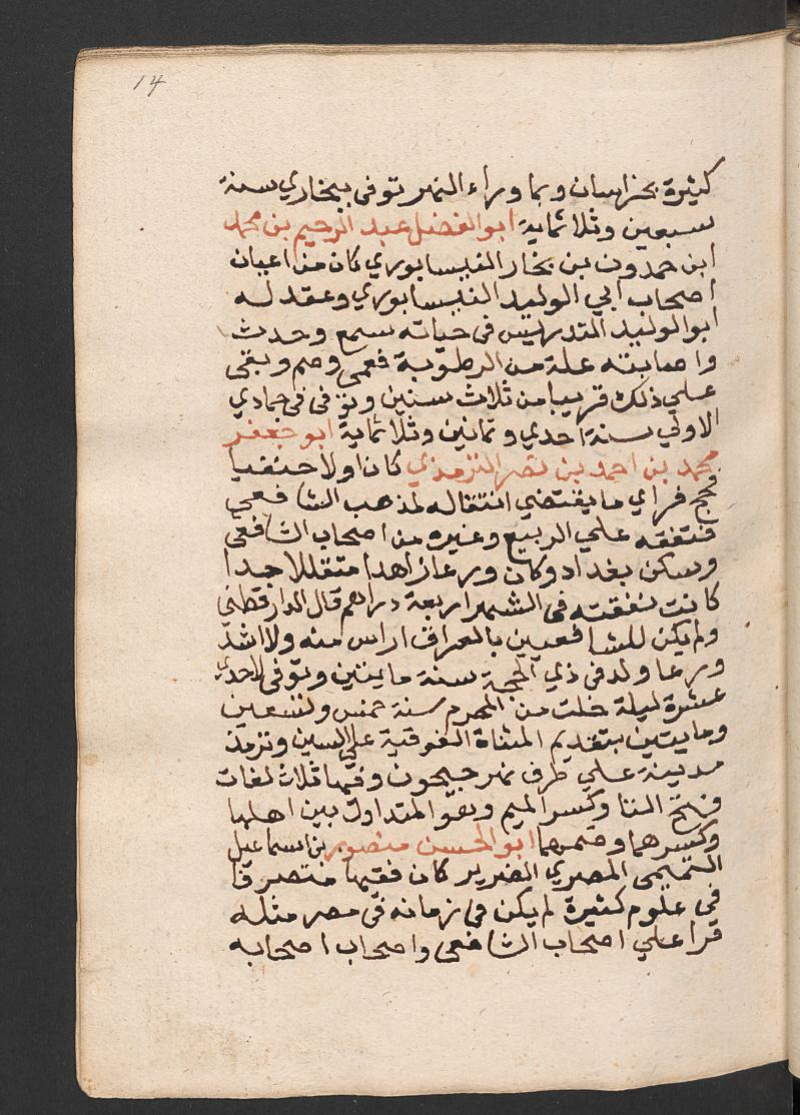 14
كثيرة بخراسان وبما وراء النهر توفى ببخاري سنة
سبعين وثلاثماية ابو الفضل عبد الرحيم بن محمد
ابن حمدون بن بخار النيسابوري كان من اعيان
اصحاب ابي الوليد النيسابوري وعقد له
ابو الوليد التدريس فى حياته سمع وحدث
واصابته علة من الرطوبة فعمى وصم وبقى
علي ذلك قريبا من ثلاث سنين وتوفى فى جمادي
الاولي سنة احدي وثمانين وثلاثماية ابو جعفر
محمد بن احمد بن نصر الترمذي كان اولا حنفيا
فحج فراي ما يقتضي انتقاله لمذهب الشافعي
فتفقه علي الربيع وغيره من اصحاب الشافعى
وسكن بغداد وكان ورعا زاهدا متقللا جدا
كانت نفقته فى الشهر اربعة دراهم قال الدارقطني
ولم يكن للشافعيين بالعراق اراس منه ولا اشد
ورعا ولد في ذي الحجة سنة مايتين وتوفى لاحدي
عشرة ليلة خلت من المحرم سنة خمس وتسعين
ومايتين بتقديم المثناة الفوقية علي السين وترمذ
مدينة علي طرف نهر جيحون وفيها ثلاث لغات
فتح التا وكسر الميم وهو المتداول بين اهلها
وكسرهما وضمهما ابو الحسن منصور بن اسماعيل
التميمي المصري الضرير كان فقيها متصرفا
في علوم كثيرة لم يكن في زمانه فى مصر مثله
قرا علي اصحاب الشافعى واصحاب اصحابه